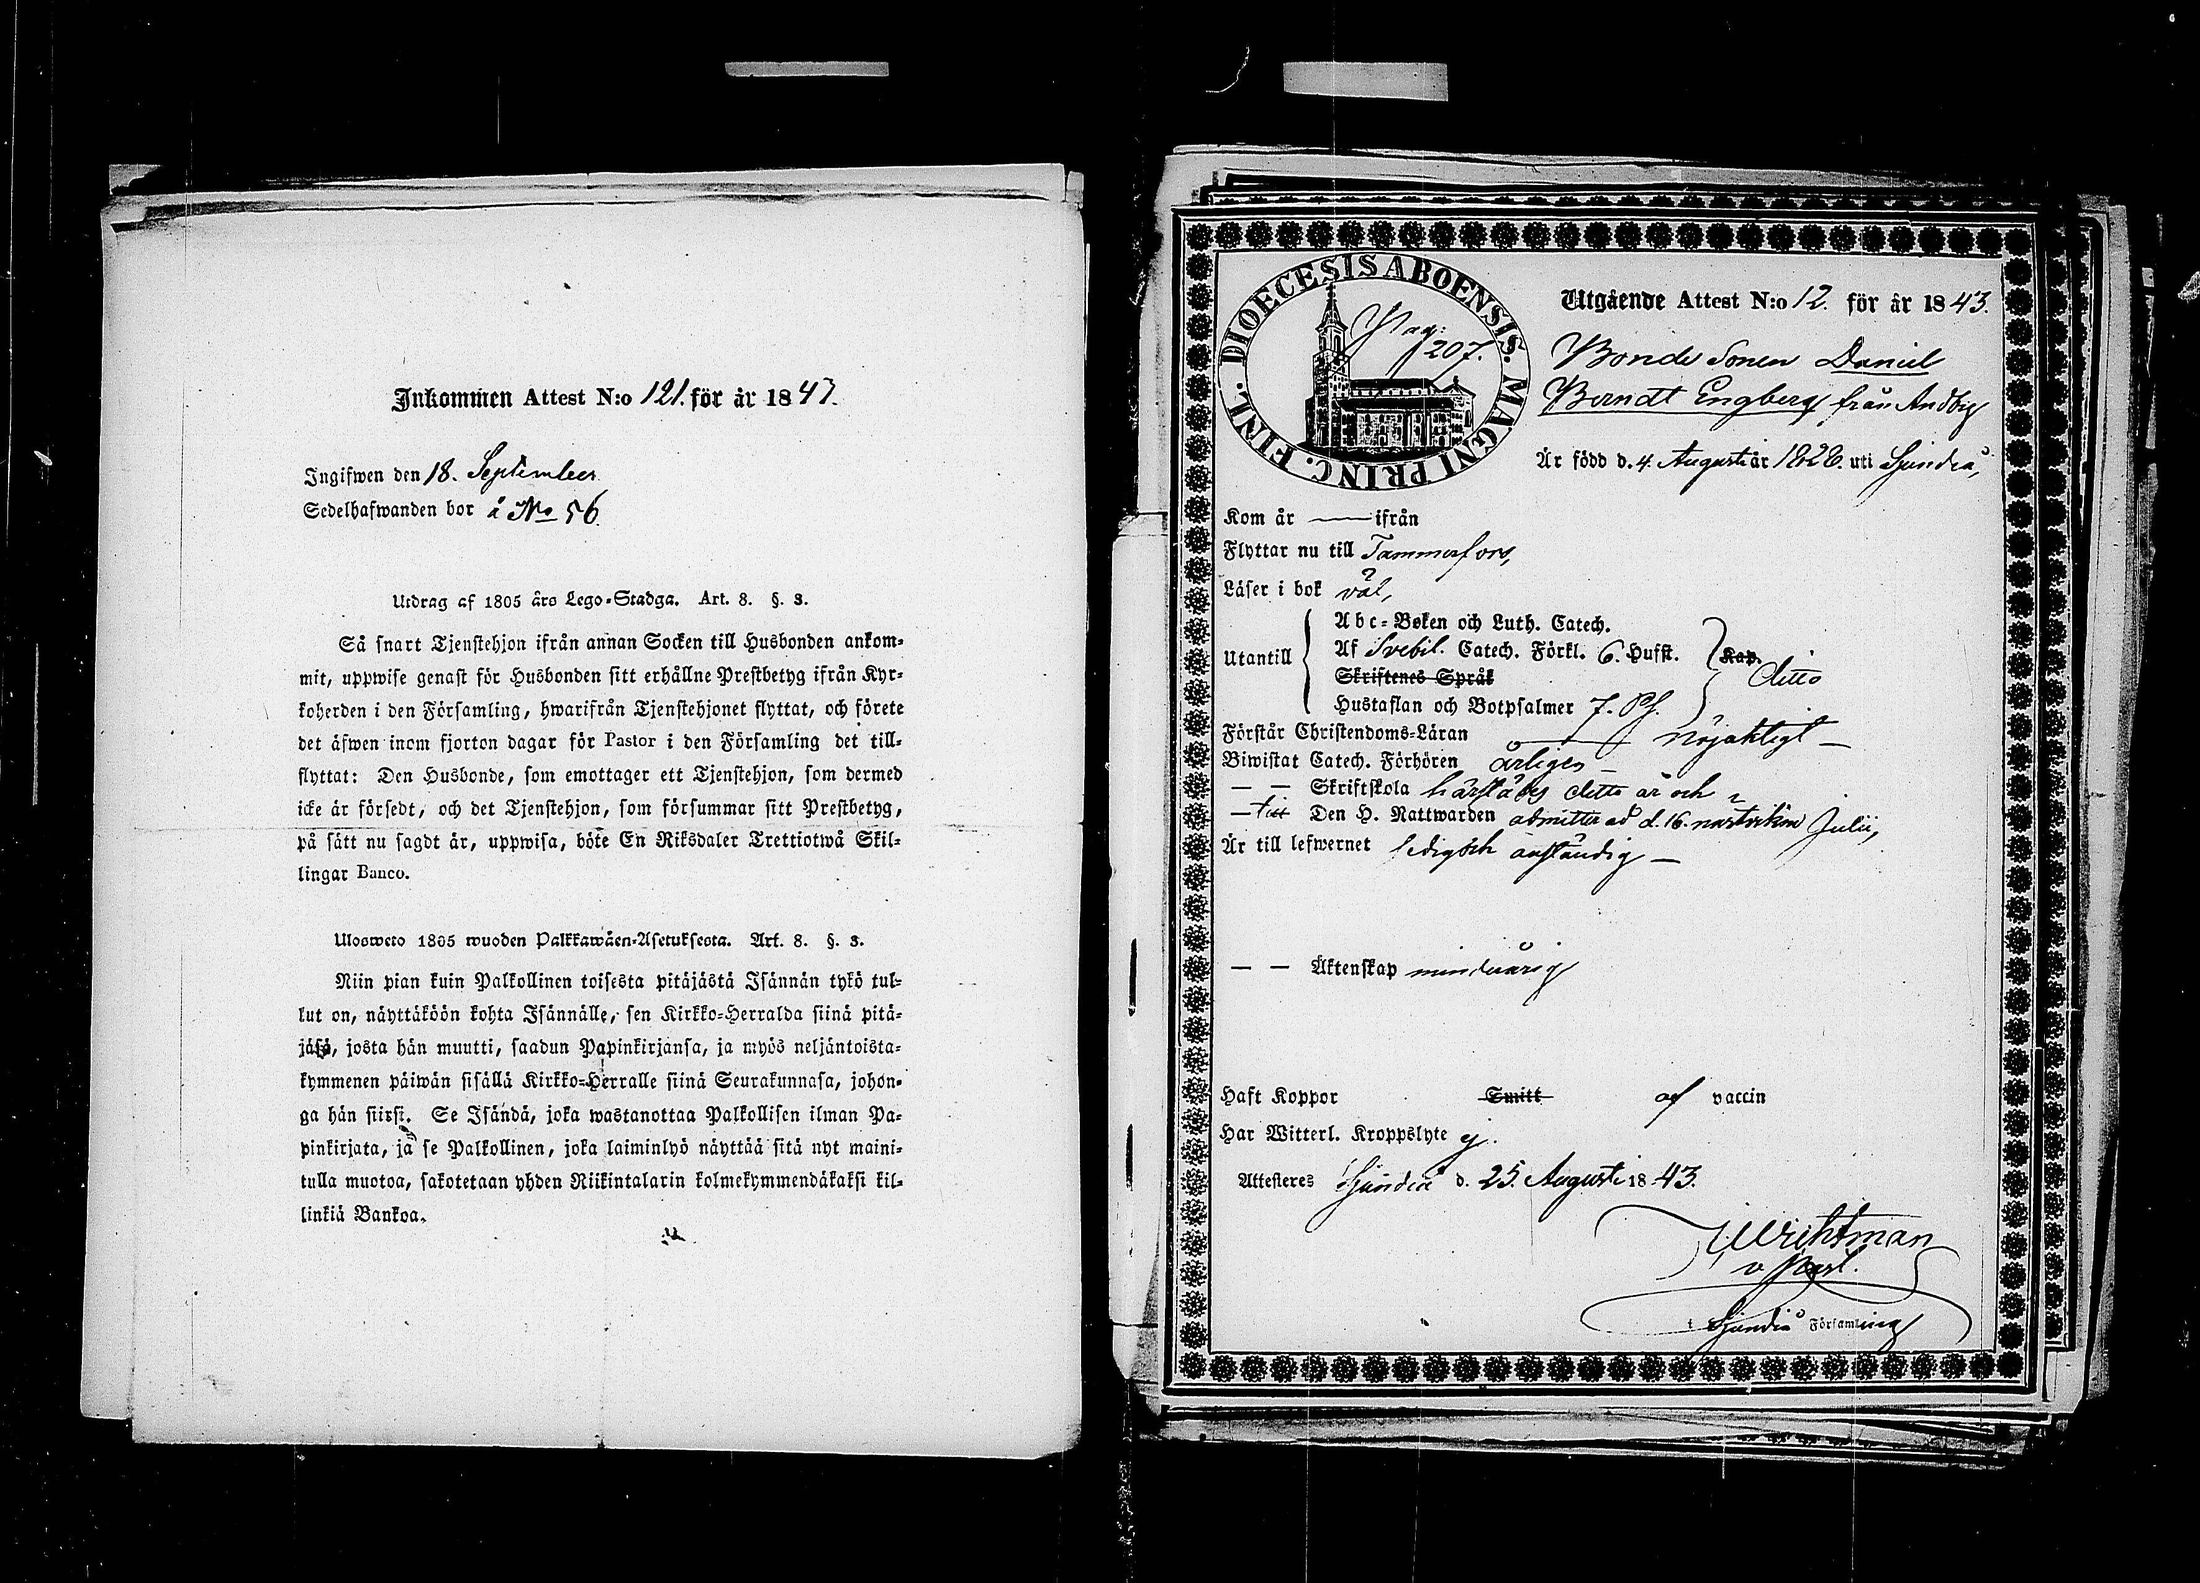 Inkommen Attest N:o 121. för år 1843.
Ingifwen den 18. September
Sedelhafwanden bor å No 56.
Utdrag af 1805 års Lego-Stadga. Art. 8. §. 3.
Så snart Tjenstehjon ifrån annan Socken till Husbonden ankom-
mit, uppwise genast för Husbonden sitt erhållne Prestbetyg ifrån Kyr-
koherden i den Församling, hwarifrån Tjenstehjonet flyttat, och förete
det äfwen inom fjorton dagar för Pastor i den Församling det till-
flyttat: Den Husbonde, som emottager ett Tjenstehjon, som dermed
icke är försedt, och det Tjenstehjon, som försummar sitt Prestbetyg,
på sätt nu sagdt är, uppwisa, böte En Riksdaler Trettiotwå Skil-
lingar Banco.
Ulosweto 1805 wuoden Palkkawäen-Asetuksesta. Art. 8. §. 3.
Niin pian kuin Palkollinen toisesta pitäjästä Isännän tykö tul-
lut on, näyttäköön kohta Isännälle, sen Kirkko-Herralda siinä pitä-
jäsä, josta hän muutti, saadun Papinkirjansa, ja myös neljäntoista-
kymmenen päiwän sisällä Kirkko-Herralle siinä Seurakunnasa, johon-
ga hän siirsi. Se Isändä, joka wastanottaa Palkollisen ilman Pa-
pinkirjata, ja se Palkollinen, joka laiminlyö näyttää sitä nyt maini-
tulla muotoa, sakotetaan yhden Riikintalarin kolmekymmendäkaksi kil-
linkiä Bankoa.
DIOECESIS ABOENSIS. MAGNI PRINC. FINL.
Pag: 207.
Utgående Attest N:o 12. för år 1843.
Bonde Sonen Daniel
Berndt Engberg från Andby
Är född d. 4. Augusti år 1826. uti Sjundeå,
Kom år — ifrån
Flyttar nu till Tammerfors,
Läser i bok väl,
Utantill
Abc-Boken och Luth. Catech.
Af Svebil. Catech. Förkl. 6. Hufst. Kap. ditto
Skriftenes Språk
Hustaflan och Botpsalmer 7. Ps.
Förstår Christendoms-Läran nöjaktigt —
Biwistat Catech. Förhören årligen —
— — Skriftskola härstädes ditto är och
— till Den H. Nattwarden admitterad d. 16. Julii,
Är till lefwernet ledig och anständig —
— — Äktenskap minderårig
Haft Koppor Smitt af vaccin
Har Witterl. Kroppslyte ej.
Attesteres Sjundeå d. 25. Augusti 1843.
v Past.
i Sjundeå Församling